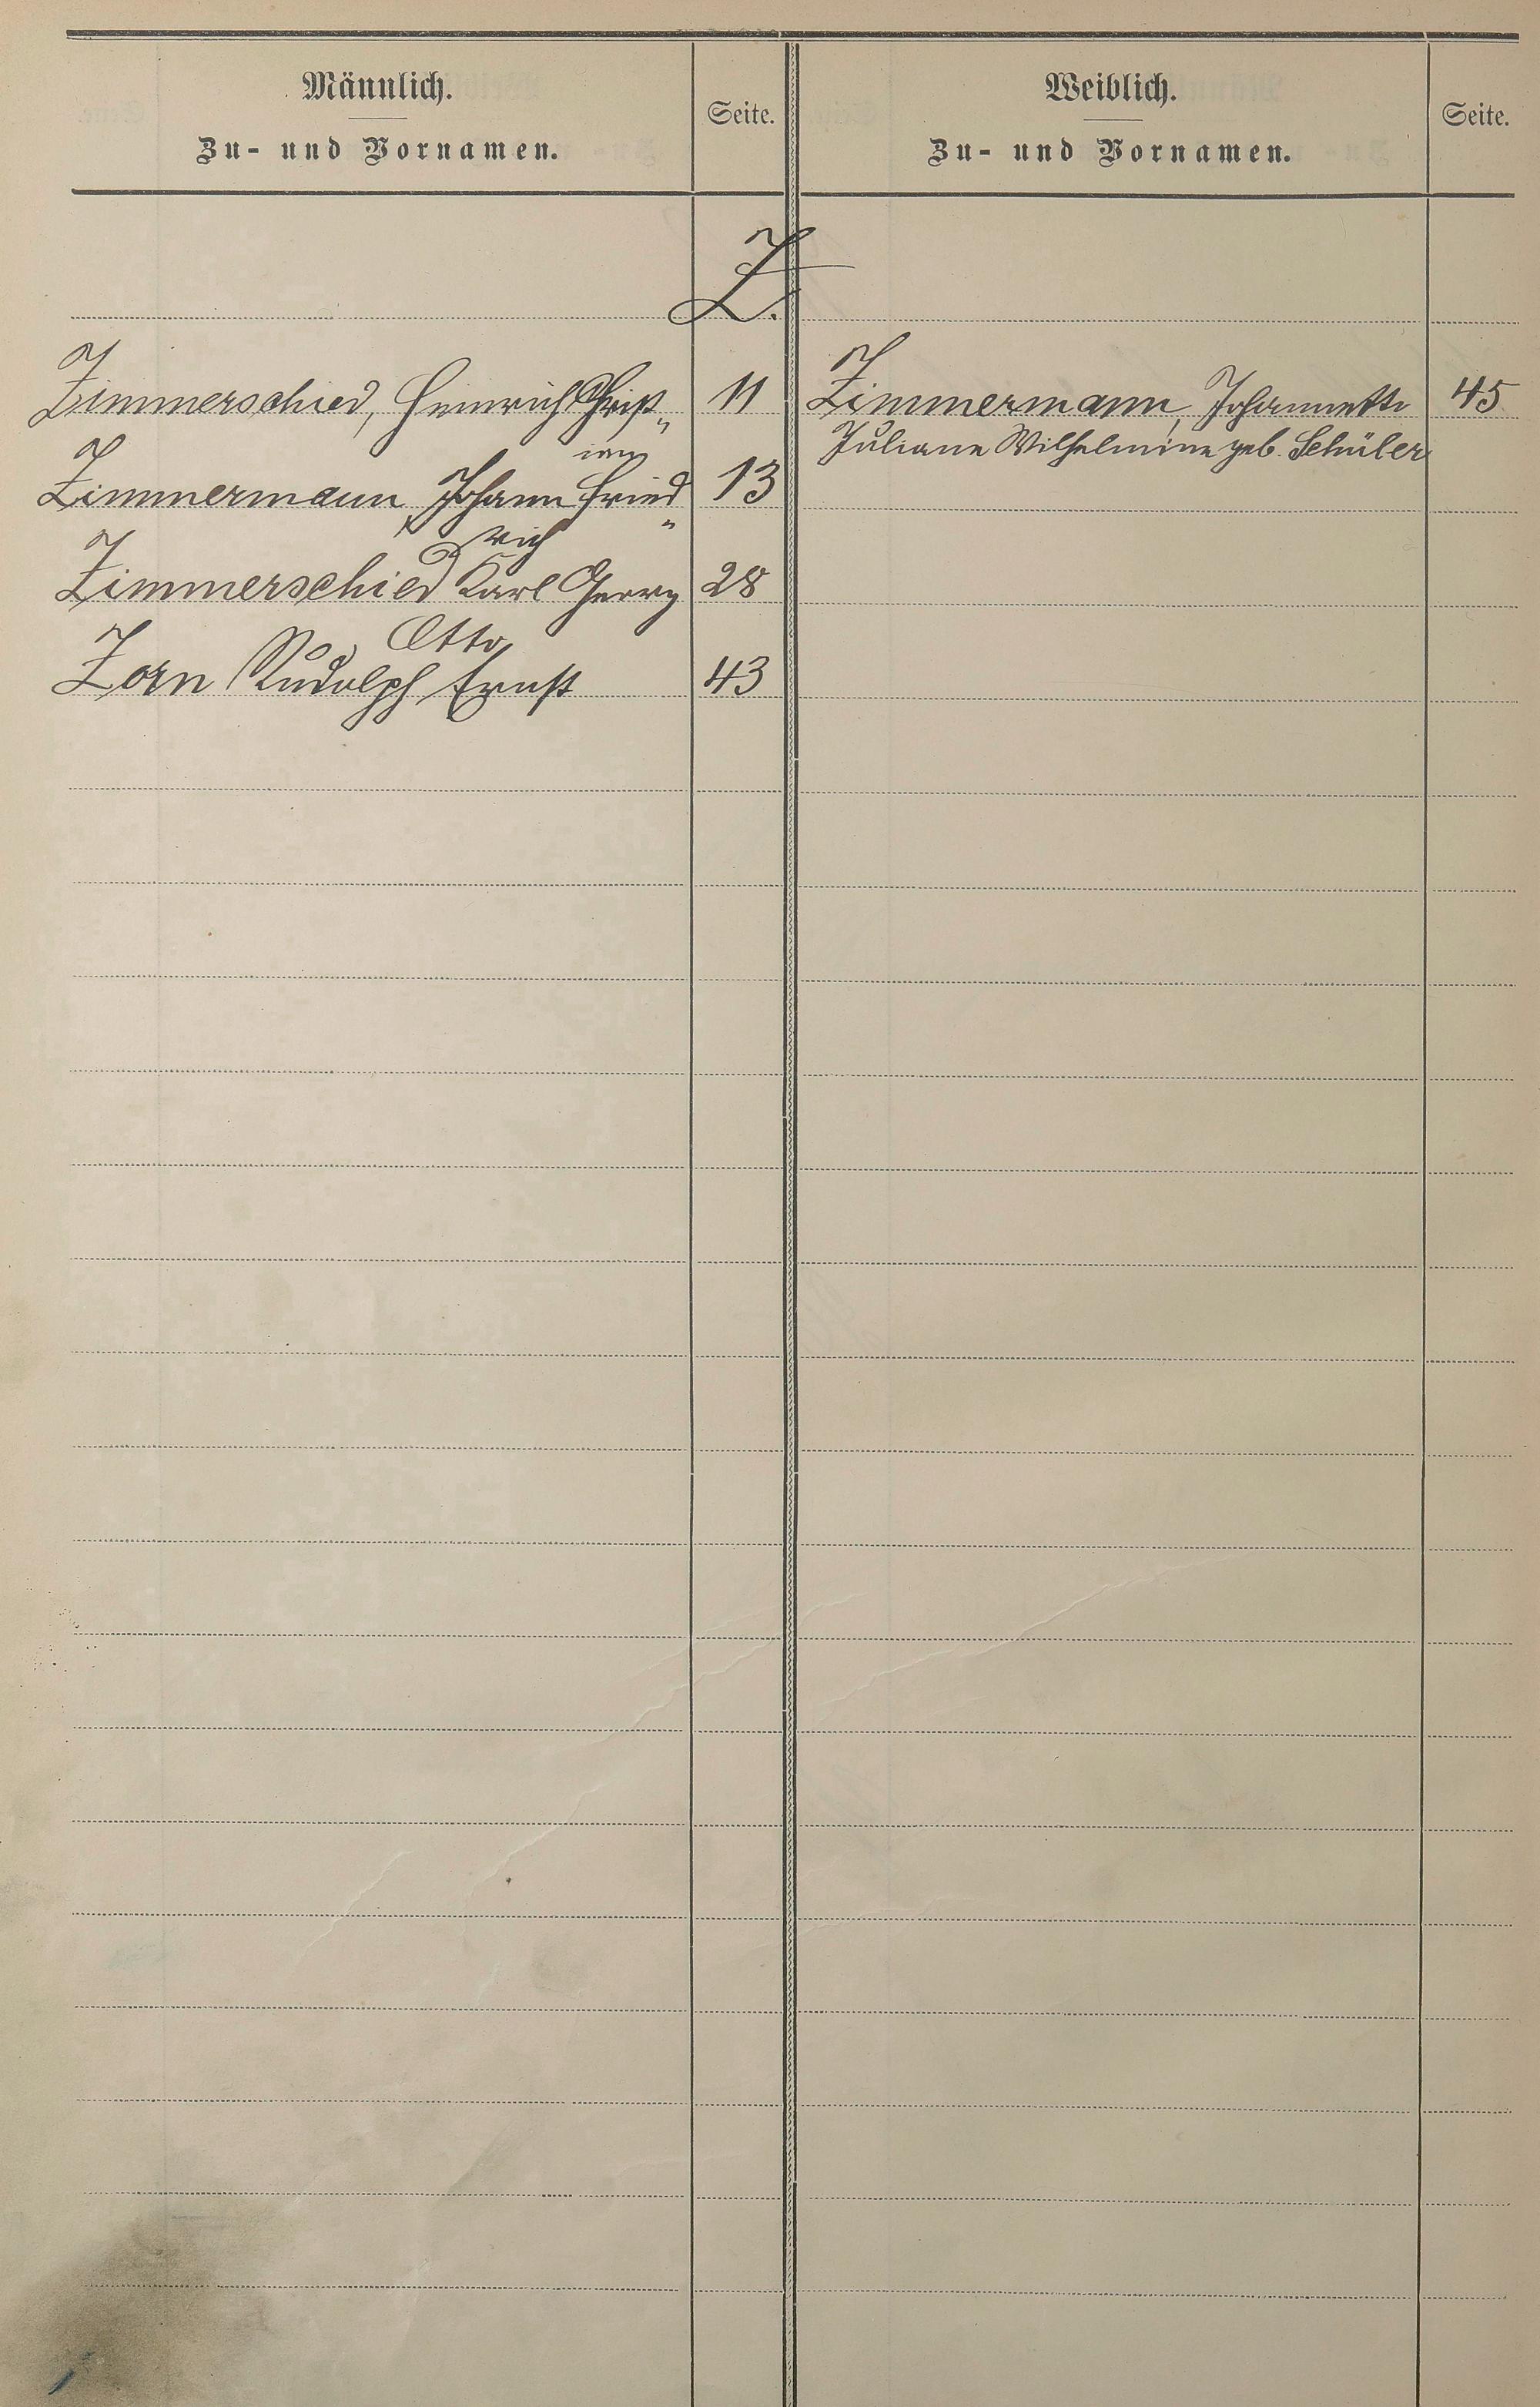 Männlich.
Zu- und Vornamen.
Seite.
Weiblich.
Zu- und Vornamen.
Seite.
Z.
Zimmerschied, Heinrich Christ„ 11
ian
Zimmermann, Johann Fried„ 13
rich
Zimmerschied Karl Georg 28
Otto
Zorn Rudolph Ernst 43
Zimmermann, Johannette 45
Juliane Wilhelmine geb. Schüler